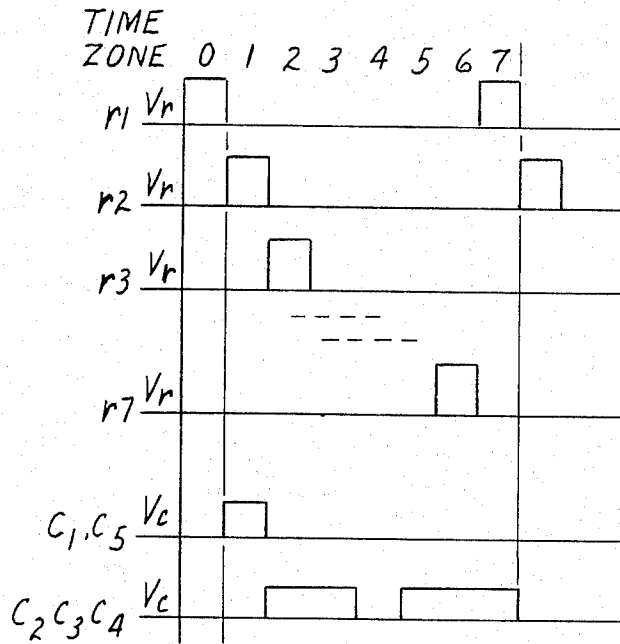 TIME
ZONE 0 1 2 3 4 5 6 7
r1 Vr
r2 Vr
r3 Vr
r7 Vr
C1, C5 Vc
C2 C3 C4 Vc